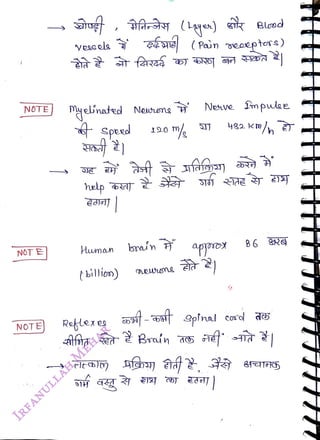 → खोपड़ी, मेनिन्जेस (Layer) और Blood
vessels में दर्दग्राही (Pain receptors)
होते है जो सिरदर्द का कारण बन सकते है|
NOTE Myelinated Neurons में Nerve Impulse
की Speed 120 m/s या 432 km/h हो
सकती है|
→ यह हमें तेजी से प्रतिक्रिया करने में
help करता है जैसे गर्म सतह से हाथ
हटाना|
NOTE Human brain में approx 86 अरब
(billion) neurons होते है|
NOTE Reflexes कभी-कभी Spinal cord तक
सीमित रहते है Brain तक नहीं जाते है|
→ तत्काल प्रक्रिया होती है, जैसे अचानक
गर्म वस्तु से हाथ का हटना|
IRFANULLAH MEHAR